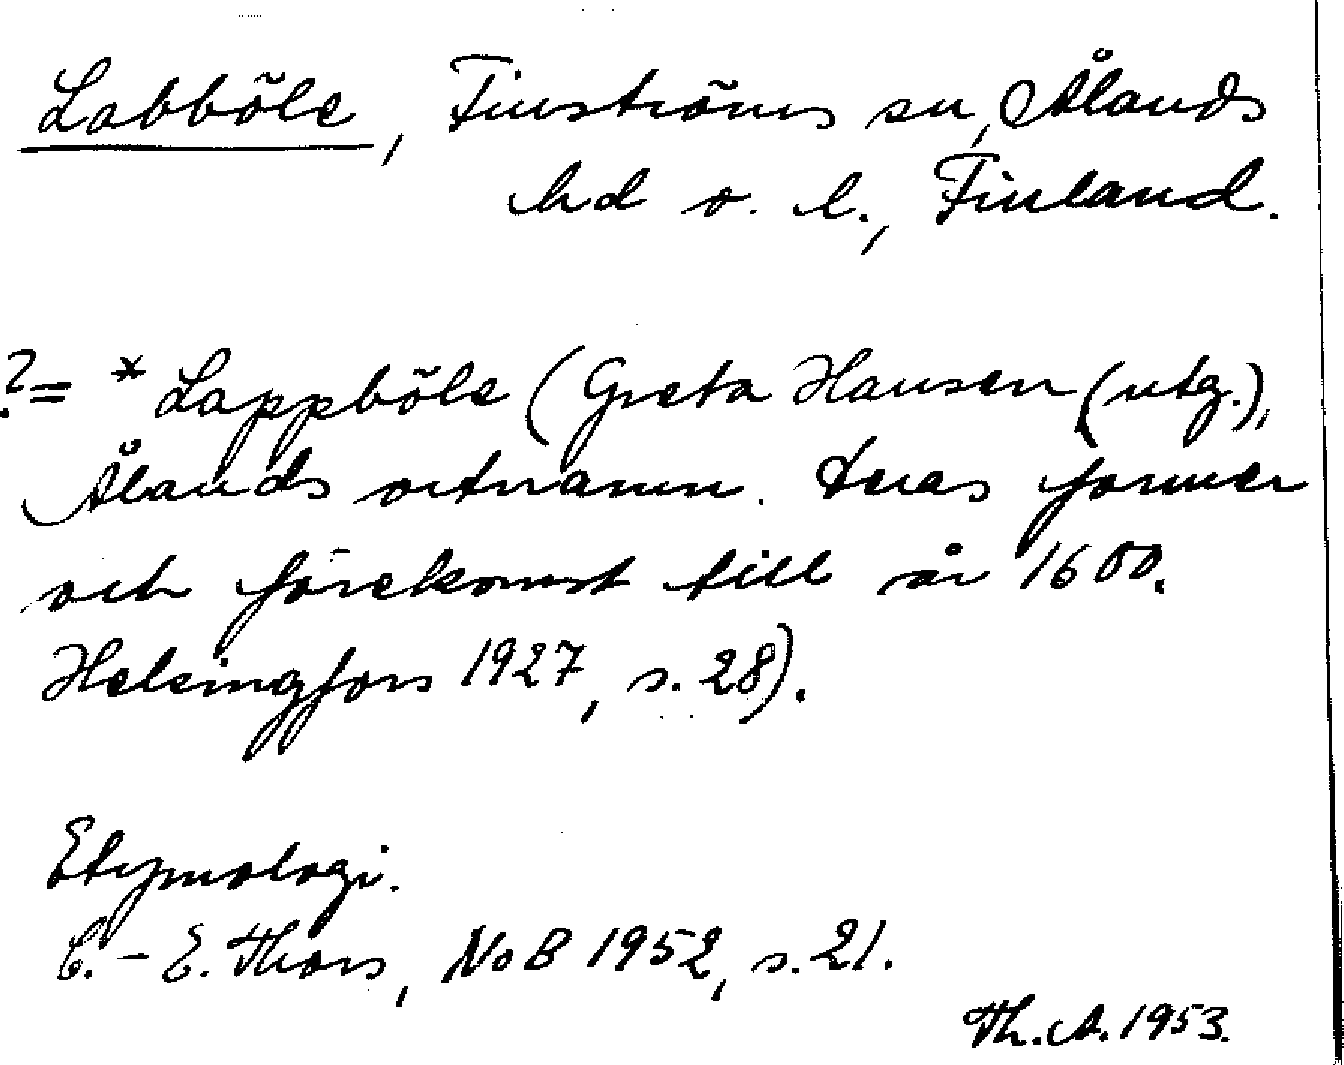 Labböle, Finströms sn, Ålands
hd o. l., Finland.
?= *Lappböle (Greta Hausen (utg.),
Ålands ortnamn. Deras former
och förekomst till år 1600.
Helsingfors 1927, s. 28).
Etymologi.
C.-E. Thors, NoB 1952, s. 21.
Th. A. 1953.